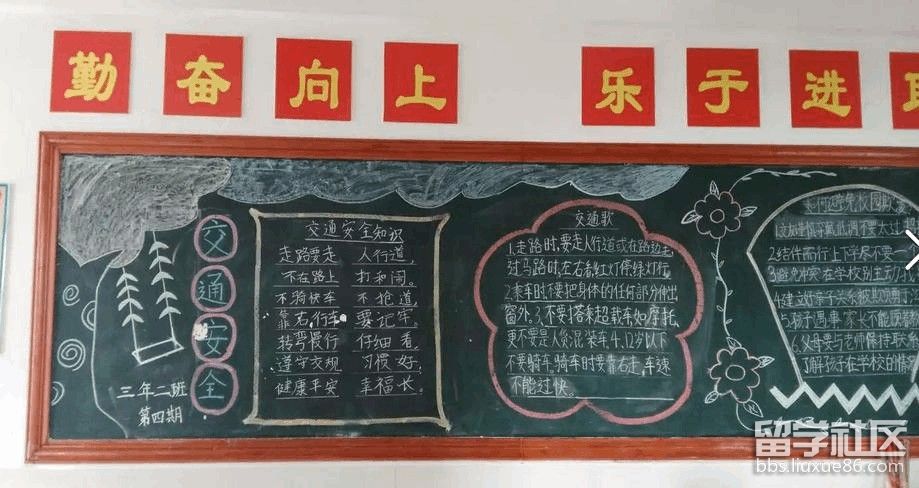 勤奋向上 乐于进
交通安全
三年二班
第四期
交通安全知识
走路要走 人行道,
不在路上 打和闹。
不骑快车 不抢道,
靠右行车 要记牢。
转弯慢行 仔细看,
遵守交规 习惯好,
健康平安 幸福长。
交通歌
1.走路时,要走人行道或在路边走,
过马路时,左右看红灯停绿灯行。
2.乘车时不要把身体的任何部分伸出
窗外。3.不要搭乘超载车如摩托,
更不要是人货混装车4.12岁以下
不要骑车,骑车时要靠右走,车速
不能过快。
如何避免校园欺
2.结伴而行上下学尽不要一
3.避免冲突 在学校别主
6.父母要与老师保持联系
了解孩子在学校的情
留学社区
bbs.liuxue86.com